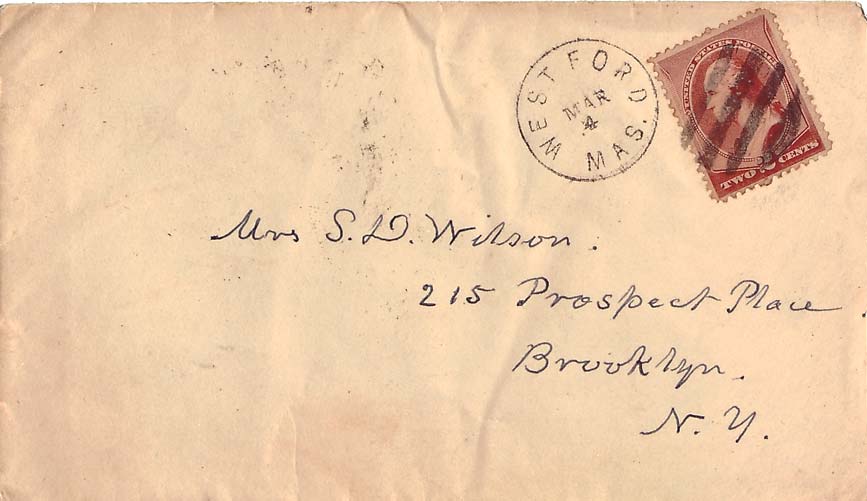 WESTFORD
MAR
4
MAS.
UNITED STATES POSTAGE
TWO 2 CENTS
Mrs S. D. Wilson.
215 Prospect Place.
Brooklyn.
N. Y.